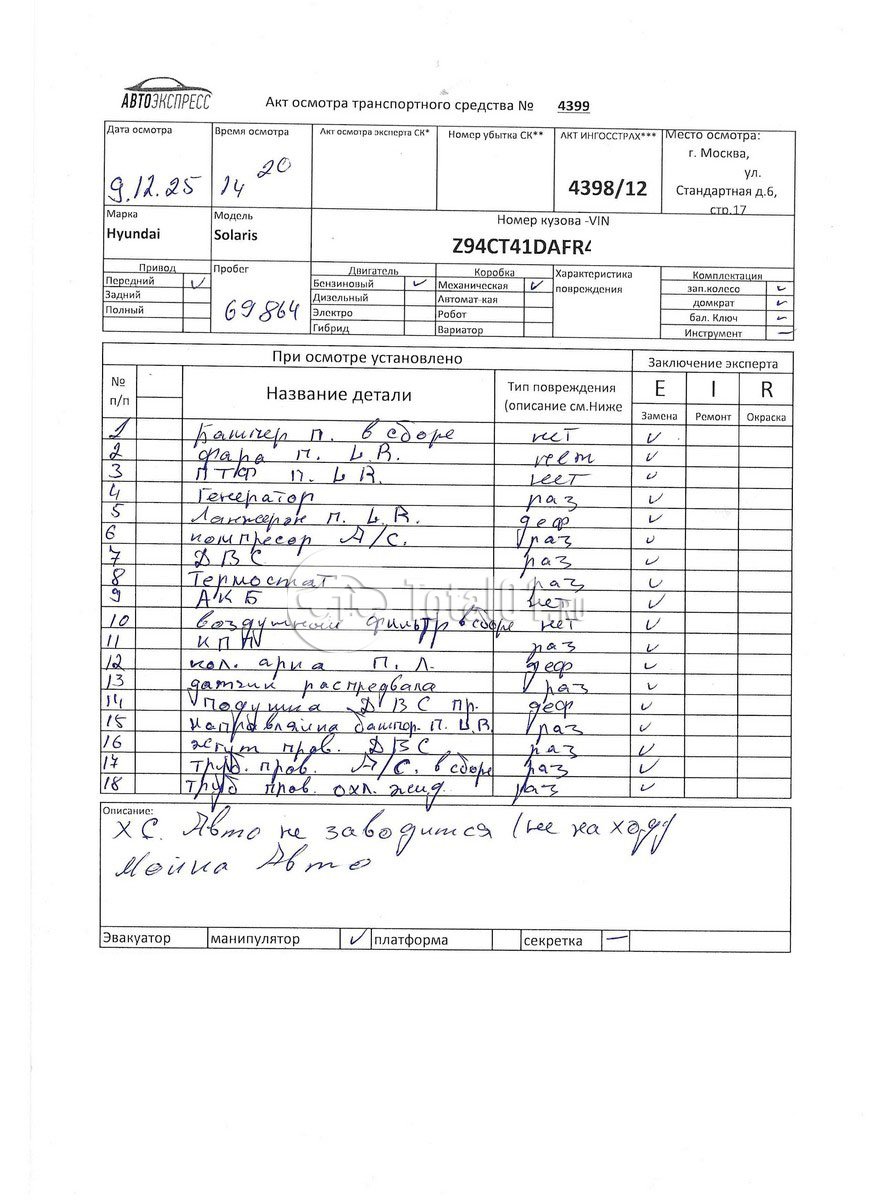 АВТОЭКСПРЕСС
Акт осмотра транспортного средства № 4399
Дата осмотра
9.12.25
Время осмотра
14 20
Акт осмотра эксперта СК*
Номер убытка СК**
АКТ ИНГОССТРАХ***
4398/12
Место осмотра:
г. Москва,
ул.
Стандартная д.6,
стр.17
Марка
Hyundai
Модель
Solaris
Номер кузова -VIN
Z94CT41DAFR4
Привод
Передний ✓
Задний
Полный
Пробег
69864
Двигатель
Бензиновый ✓
Дизельный
Электро
Гибрид
Коробка
Механическая ✓
Автомат-кая
Робот
Вариатор
Характеристика
повреждения
Комплектация
зап.колесо ✓
домкрат ✓
бал. Ключ ✓
Инструмент —
При осмотре установлено
Заключение эксперта
№
п/п
Название детали
Тип повреждения
(описание см.Ниже
E I R
Замена Ремонт Окраска
1 Бампер п. в сборе нет ✓
2 фара п. L.R. нет ✓
3 ПТФ п. L R. нет ✓
4 Генератор раз ✓
5 Ланжерон п. L.R. деф ✓
6 компресор A/C. раз ✓
7 ДВС раз ✓
8 Термостат раз ✓
9 АКБ нет ✓
10 воздушный фильтр в сборе нет ✓
11 КПП раз ✓
12 кол. арка п. л. деф ✓
13 датчик распредвала раз ✓
14 Подушка ДВС пр. деф ✓
15 бампер. п. L.R. раз ✓
16 жгут пров. ДВС раз ✓
17 труб. пров. A/C. в сборе раз ✓
18 труб пров. охл. жид. раз ✓
Total01.RU
Описание:
ХС. Авто не заводится (не на ходу
Мойка Авто
Эвакуатор манипулятор ✓ платформа секретка —